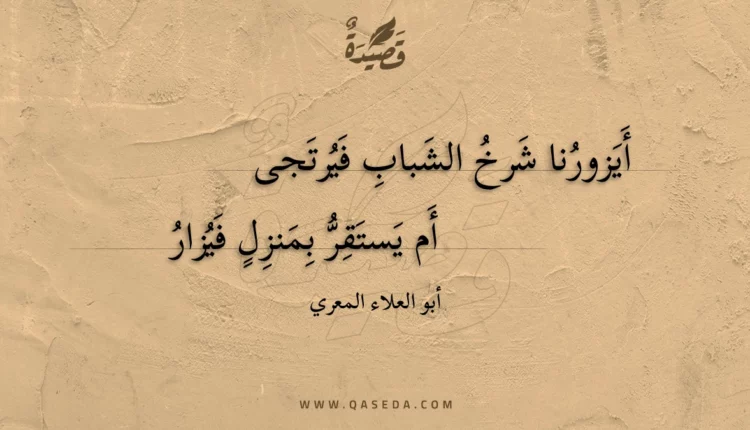 قَصِيْدَةٌ
أَيَزورُنا شَرخُ الشَبابِ فَيُرتَجى
أَم يَستَقِرُّ بِمَنزِلٍ فَيُزارُ
أبو العلاء المعري
WWW.QASEDA.COM